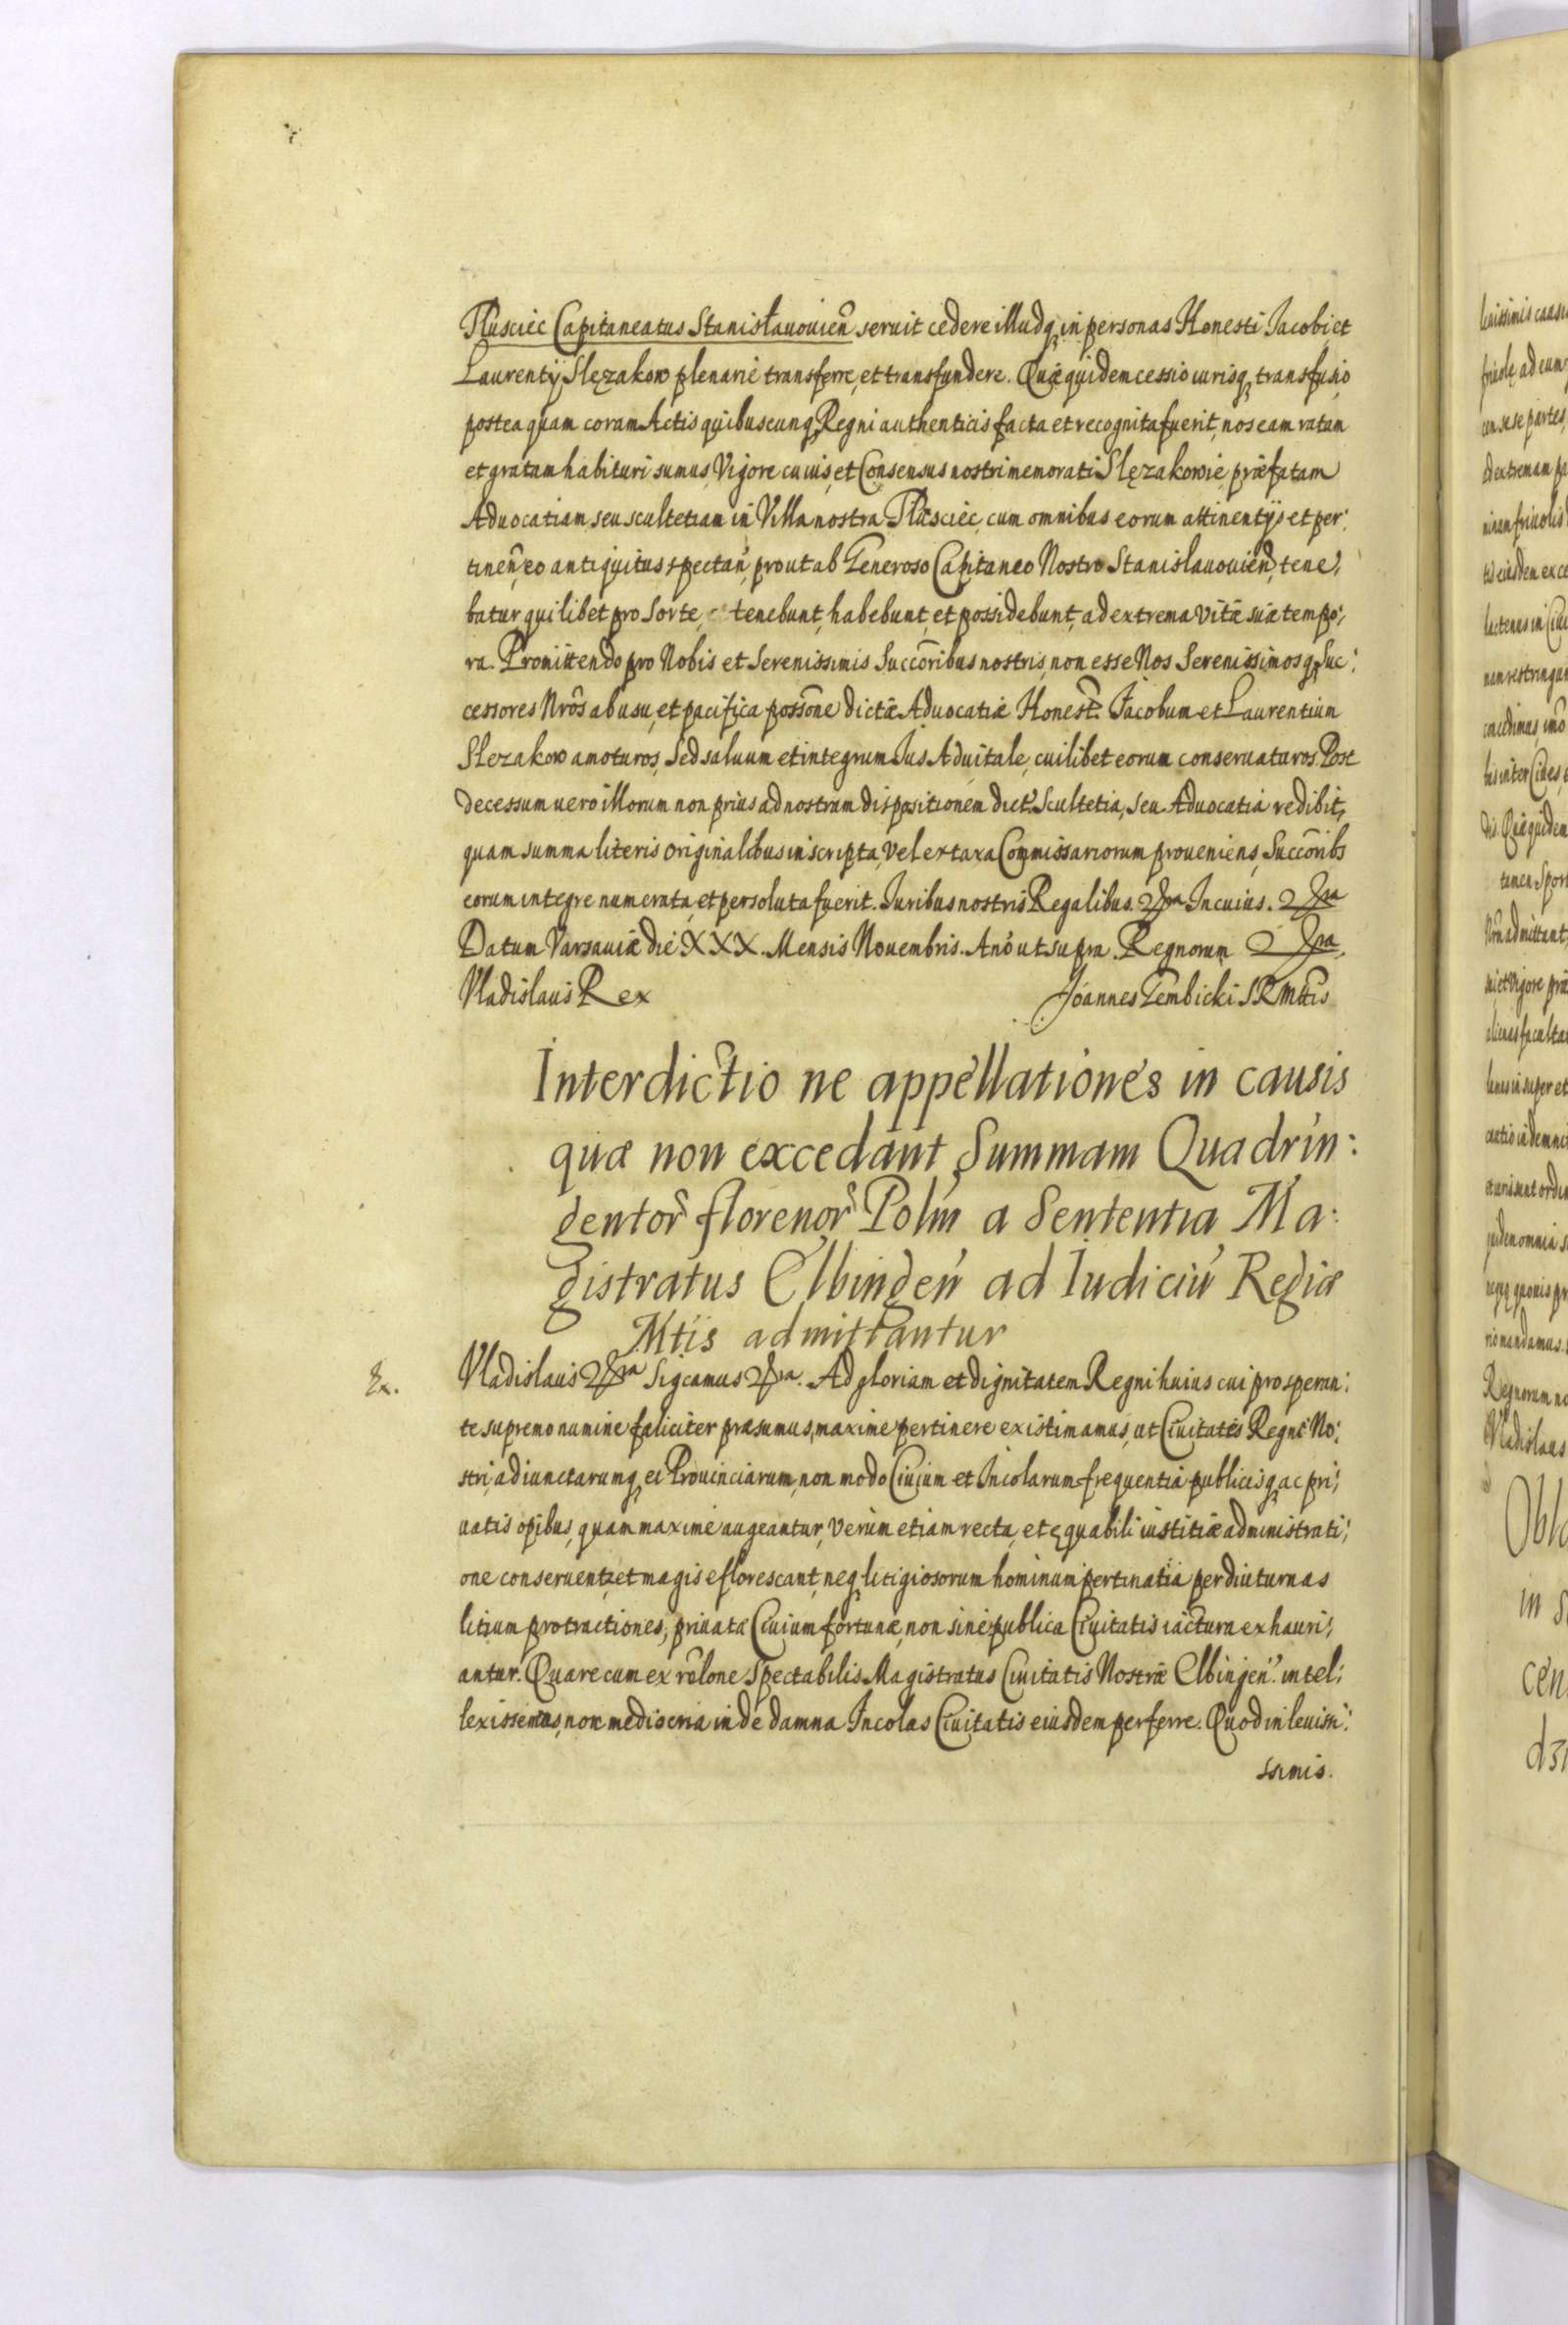 Pluściec Capitaneatus Stanisłauouien̄ seruit cedere illudq, in personas Honesti Jacobi et
Laurentÿ Slęzakow plenarie transferre, et transfundere. Quæ quidem cessio iurisq, transfusio
postea quam coram Actis quibuscunq, Regni authenticis facta et recognita fuerit, nos eam ratam
et gratam habituri sumus, Vigore cuius, et Consensus nostri memorati Slęzakowie, præfatam
Aduocatiam seu scultetiam in Villa nostra Pluściec, cum omnibus eorum attinentÿs et per:
tinen̄, eo antiquitus spectan̄, prout ab Generoso Capitaneo Nostro Stanislauouien̄, tene:
batur quilibet pro sorte, tenebunt, habebunt, et possidebunt, ad extrema vitæ suæ tempo:
ra. Promittendo pro Nobis et Serenissimis Succōribus nostris, non esse Nos Serenissimosq, Suc:
cessores Nrōs ab usu, et pacifica possōne dictæ Aduocatiæ Honest. Jacobum et Laurentium
Slezakow amoturos, Sed saluum et integrum Jus Aduitale, cuilibet eorum conseruaturos. Post
decessum uero illorum non prius ad nostram dispositionem dict. Scultetia, seu Aduocatia redibit,
quam summa literis originalibus inscripta, vel ex taxa Commissariorum proueniens, Succōribs
eorum integre numerata, et persoluta fuerit. Juribus nostris Regalibus. &ra In cuius. &ra
Datum Varsauiæ die XXX. Mensis Nouembris. Anō ut supra. Regnorum &ra.
Vladislaus Rex Joannes Gembicki SRMttis
Interdictio ne appellationes in causis
quæ non excedant Summam Quadrin:
gentor̄ florenor̄ Poln̄ a Sententia Ma:
gistratus Elbingen̄ ad Iudiciū Regiæ
Mtis admittantur
Ex. Vladislaus &ra Sigcamus &ra. Ad gloriam et dignitatem Regni huius cui prosperan:
te supremo numine fæliciter præsumus, maxime pertinere existimamus, ut Ciuitates Regni No:
stri, adiunctarumq, ei Prouinciarum, non modo Ciuium et Incolarum frequentia publicisq, ac pri:
uatis opibus, quam maxime augeantur, Verùm etiam recta, et ęquabili iustitiæ administrati:
one conseruentur et magis eflorescant, neq, litigiosorum hominum pertinatia per diuturnas
litium protractiones, priuatæ Ciuium fortunæ, non sine publica Ciuitatis iactura exhauri:
antur. Quare cum ex rēlone Spectabilis Magistratus Ciuitatis Nostræ Elbingen̄. intel:
lexissemus, non mediocria inde damna Incolas Ciuitatis eiusdem perferre. Quod in leuissi:
ssimis.